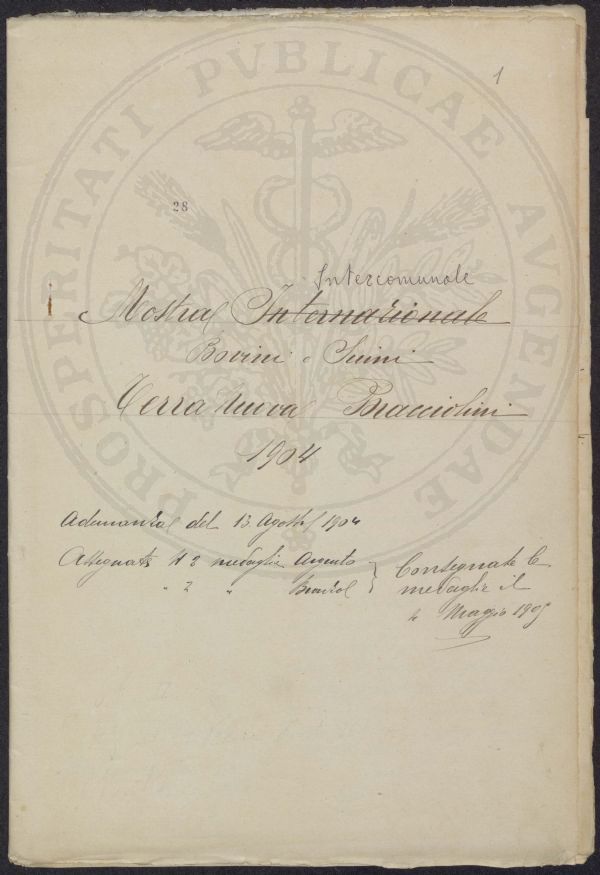 1
PROSPERITATI PVBLICAE AVGENDAE
28
Intercomunale
Mostra Internazionale
Bovini e Suini
Terra Nuova Bracciolini
1904
Adunanza del 13 Agosto 1904
Assegnate N 2 medaglie Argento
" 2 " Bronzo
Consegnate le
medaglie il
Maggio 1905